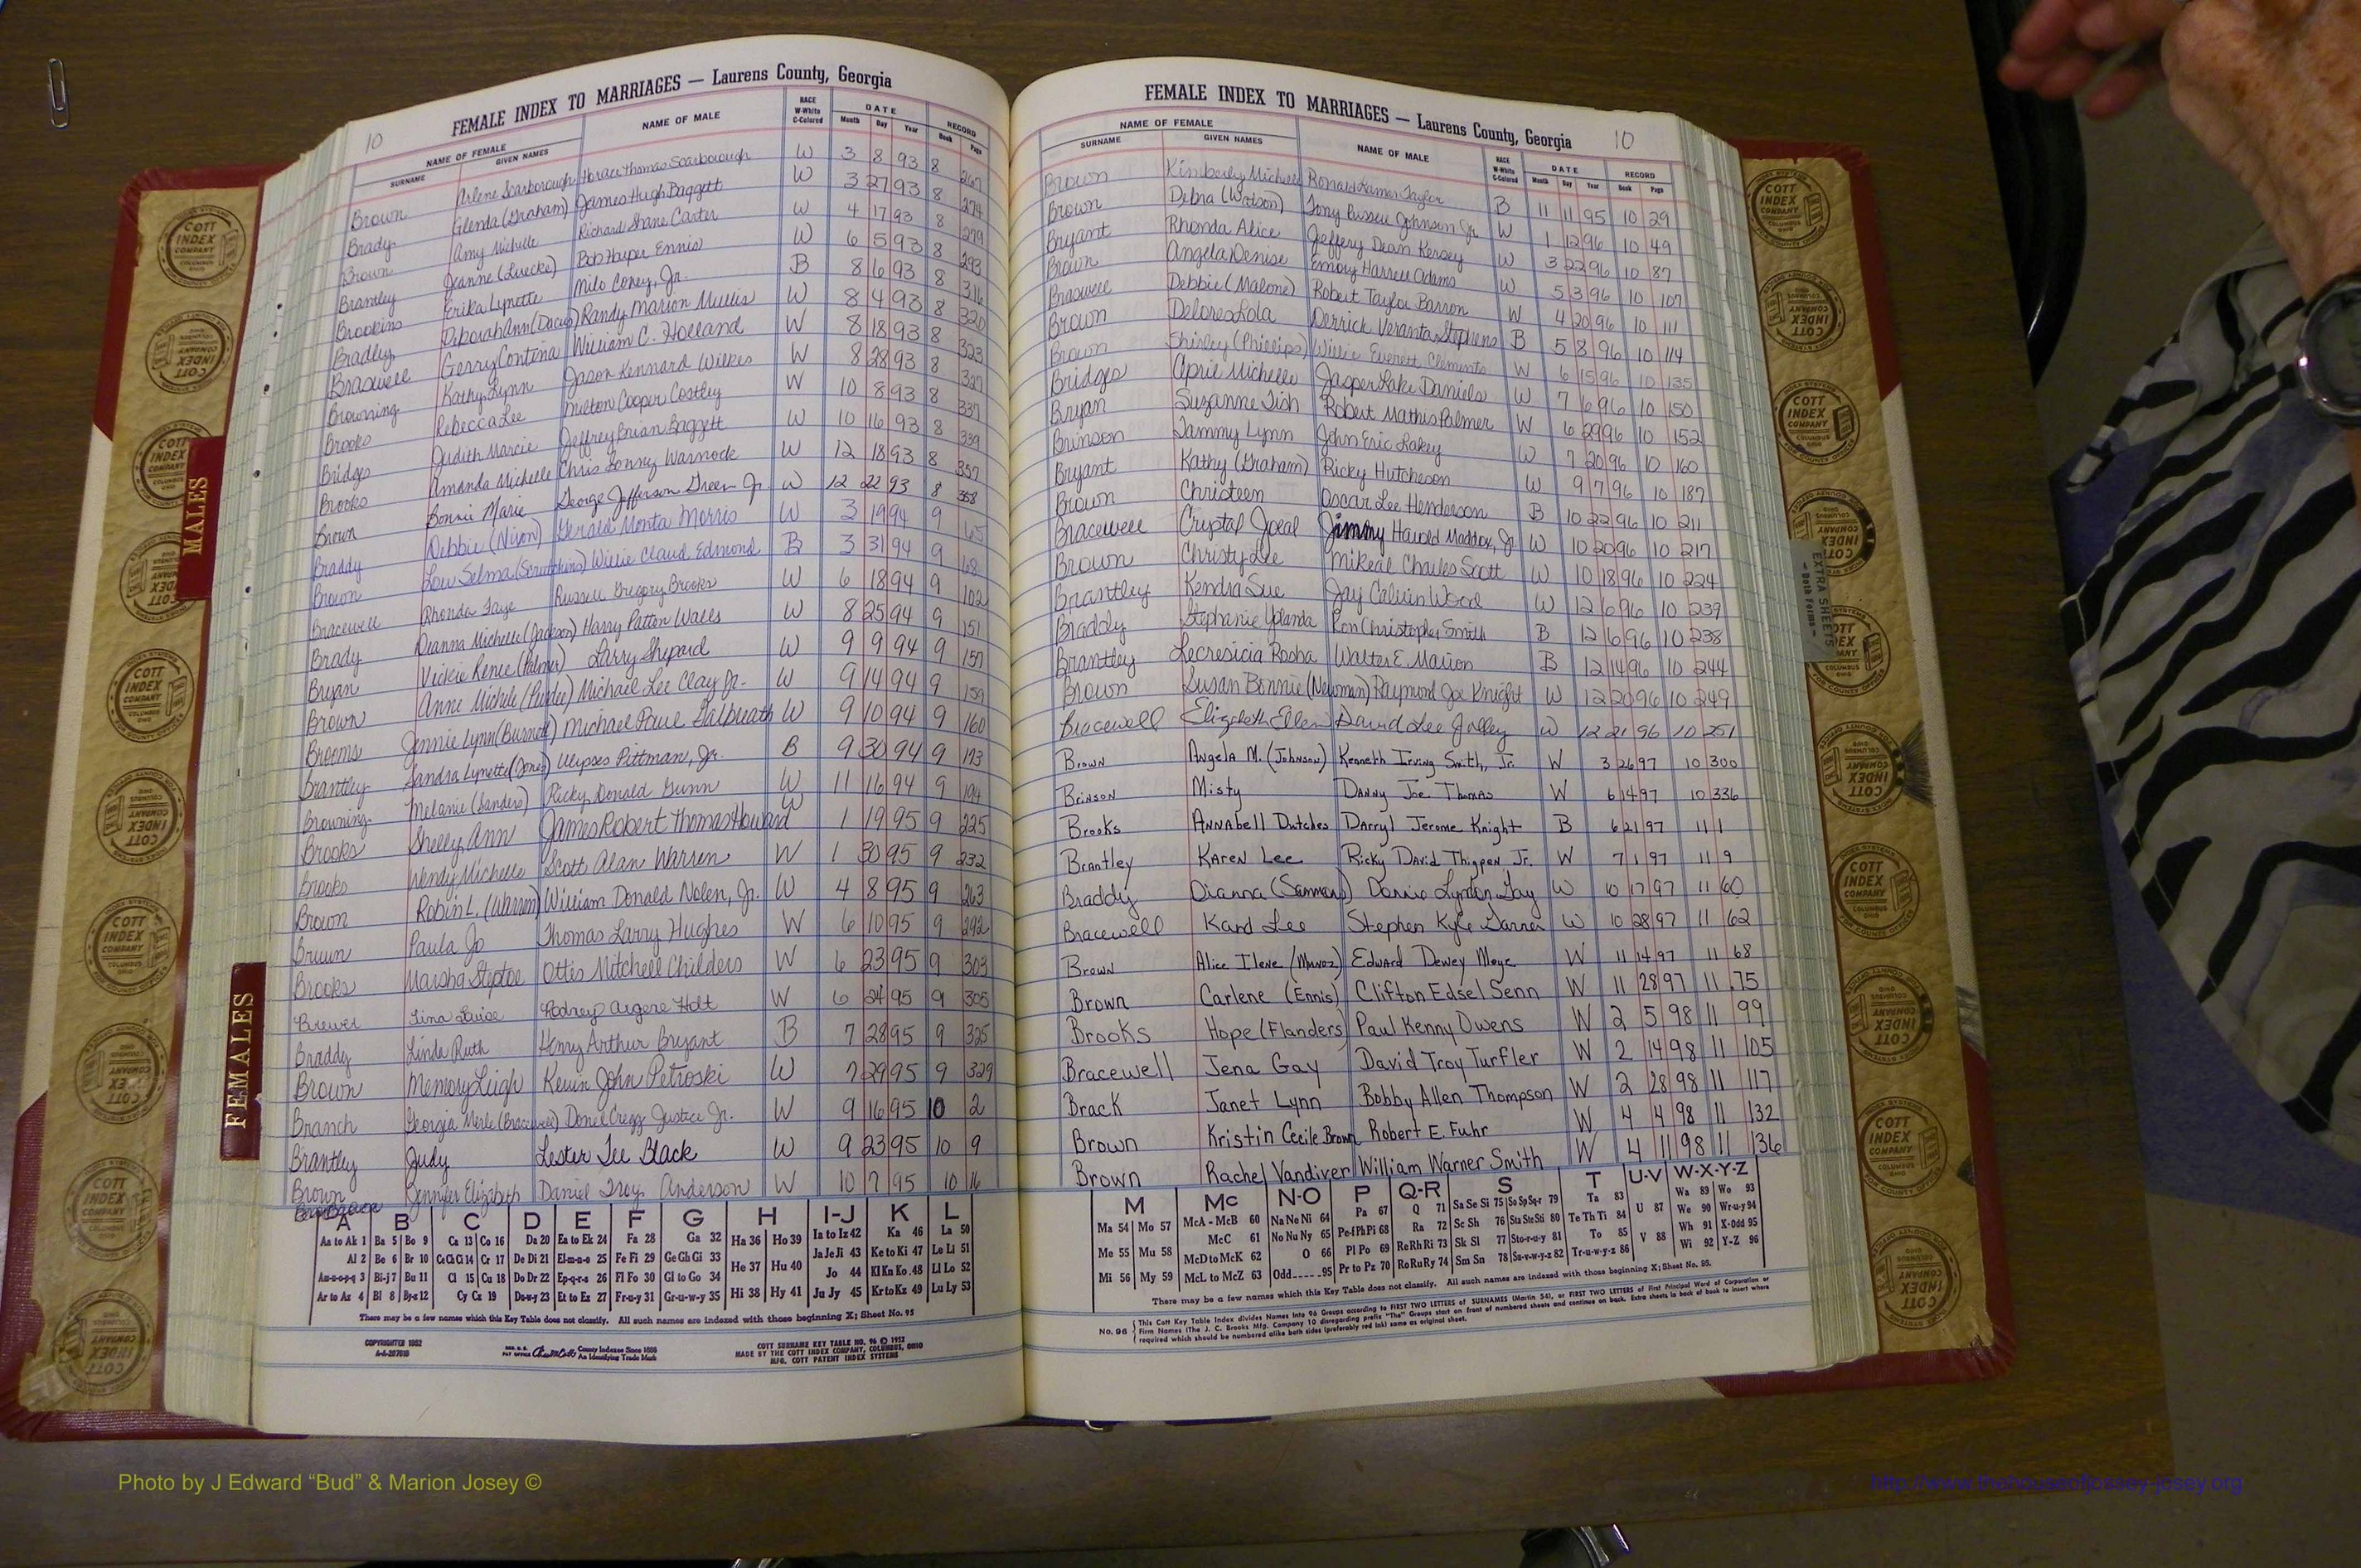 10
FEMALE INDEX TO MARRIAGES — Laurens County, Georgia
NAME OF FEMALE NAME OF MALE RACE W-White C-Colored DATE RECORD
SURNAME GIVEN NAMES Month Day Year Book Page
Brown Arlene Scarborough Horace Thomas Scarborough W 3 8 93 8 267
Brady Glenda (Graham) James Hugh Baggett W 3 27 93 8 274
Brown Amy Michelle Richard Shane Carter W 4 17 93 8 279
Brantley Jeanne (Luecke) Bob Harper Ennis W 6 5 93 8 293
Brookins Erika Lynette Milo Coney, Jr. B 8 6 93 8 316
Bradley Deborah Ann (Dacus) Randy Marion Mullis W 8 4 93 8 320
Braswell Gerry Contina William C. Holland W 8 18 93 8 323
Browning Kathy Lynn Jason Kennard Wilkes W 8 28 93 8 327
Brooks Rebecca Lee Milton Cooper Costley W 10 8 93 8 337
Bridges Judith Marie Jeffrey Brian Baggett W 10 16 93 8 339
Brooks Amanda Michelle Chris Lonny Warnock W 12 18 93 8 357
Brown Bonnie Marie George Jefferson Green Jr. W 12 22 93 8 358
Braddy Debbie (Nixon) Gerald Monta Morris W 3 19 94 9 65
Brown Lou Selma Willie Claud Edmond B 3 31 94 9 68
Bracewell Rhonda Faye Russell Gregory Brooks W 6 18 94 9 102
Brady Dianna Michelle (Jackson) Harry Patton Walls W 8 25 94 9 151
Bryan Vickie Renee (Palmer) Larry Shepard W 9 9 94 9 157
Brown Anne Michele (Purdee) Michael Lee Clay Jr. W 9 14 94 9 159
Brooms Jennie Lynn (Burnett) Michael Paul Galbreath W 9 10 94 9 160
Brantley Sandra Lynette (Jones) Ulysses Pittman, Jr. B 9 30 94 9 173
Browning Melanie (Sanders) Ricky Donald Gunn W 11 16 94 9 194
Brooks Shelly Ann James Robert Thomas Howard W 1 19 95 9 225
Brooks Wendy Michelle Scott Alan Warren W 1 30 95 9 232
Brown Robin L. (Warren) William Donald Nolen, Jr. W 4 8 95 9 263
Bruun Paula Jo Thomas Larry Hughes W 6 10 95 9 292
Brooks Marsha Steptoe Ottis Mitchell Childers W 6 23 95 9 303
Brewer Tina Louise Rodney Argene Holt W 6 24 95 9 305
Braddy Linda Ruth Henry Arthur Bryant B 7 28 95 9 325
Brown Memory Leigh Kevin John Petroski W 7 29 95 9 329
Branch Georgia Merle (Bracewell) Donel Gregg Justice Jr. W 9 16 95 10 2
Brantley Judy Lester Lee Black W 9 23 95 10 9
Brown Jennifer Elizabeth Daniel Troy Anderson W 10 7 95 10 16
A B C D E F G H I-J K L
Aa to Ak 1 Ba 5 Bo 9 Ca 13 Co 16 Da 20 Ea to Ek 24 Fa 28 Ga 32 Ha 36 Ho 39 Ia to Iz 42 Ka 46 La 50
Al 2 Be 6 Br 10 Ce Ch Ci 14 Cr 17 De Di 21 El-m-n-o 25 Fe Fi 29 Ge Gh Gi 33 He 37 Hu 40 Ja Je Ji 43 Ke to Ki 47 Le Li 51
An-o-p-q 3 Bi-j 7 Bu 11 Cl 15 Cu 18 Do Dr 22 Ep-q-r-s 26 Fl Fo 30 Gl to Go 34 Jo 44 Kl Kn Ko 48 Ll Lo 52
Ar to Az 4 Bl 8 By-z 12 Cy Cz 19 Du-w-y 23 Et to Ez 27 Fr-u-y 31 Gr-u-w-y 35 Hi 38 Hy 41 Ju Jy 45 Kr to Kz 49 Lu Ly 53
There may be a few names which this Key Table does not classify. All such names are indexed with those beginning X; Sheet No. 95
COTT SURNAME KEY TABLE NO. 96 © 1952
MADE BY THE COTT INDEX COMPANY, COLUMBUS, OHIO
MFG. COTT PATENT INDEX SYSTEMS
County Indexes Since 1888
An Identifying Trade Mark
FEMALE INDEX TO MARRIAGES — Laurens County, Georgia 10
NAME OF FEMALE NAME OF MALE RACE W-White C-Colored DATE RECORD
SURNAME GIVEN NAMES Month Day Year Book Page
Brown Kimberly Michelle Ronard Lamar Taylor B 11 11 95 10 29
Brown Debra (Watson) Tony Russell Johnson Jr. W 1 12 96 10 49
Bryant Rhonda Alice Jeffery Dean Kersey W 3 22 96 10 87
Brown Angela Denise Emory Harrell Adams W 5 3 96 10 107
Braswell Debbie (Malone) Robert Taylor Barron W 4 20 96 10 111
Brown Delores Lola Derrick Veranta Stephens B 5 8 96 10 114
Brown Shirley (Phillips) Willie Everett Clements W 6 15 96 10 135
Bridges April Michelle Jasper Lake Daniels W 7 6 96 10 150
Bryan Suzanne Tish Robert Mathis Palmer W 6 29 96 10 152
Brinson Tammy Lynn John Eric Lakey W 7 20 96 10 160
Bryant Kathy (Graham) Ricky Hutcheson W 9 7 96 10 187
Brown Christeen Oscar Lee Henderson B 10 22 96 10 211
Bracewell Crystal Joeal Jimmy Harold Maddox, Jr. W 10 20 96 10 217
Brown Christy Lee Mikeal Charles Scott W 10 18 96 10 224
Brantley Kendra Sue Jay Calvin Wood W 12 6 96 10 239
Braddy Stephanie Yolanda Ron Christopher Smith B 12 6 96 10 238
Brantley Lecresicia Rosha Walter E. Marion B 12 14 96 10 244
Brown Susan Bonnie (Newman) Raymond Joe Knight W 12 20 96 10 249
Bracewell Elizabeth Ellen David Lee Jolley W 12 21 96 10 251
Brown Angela M. (Johnson) Kenneth Irving Smith, Jr. W 3 26 97 10 300
Brinson Misty Danny Joe Thomas W 6 14 97 10 336
Brooks Annabell Dutches Darryl Jerome Knight B 6 21 97 11 1
Brantley Karen Lee Ricky David Thigpen Jr. W 7 1 97 11 9
Braddy Dianna (Sammons) Lyndon Gay W 10 17 97 11 60
Bracewell Kard Lee Stephen Kyle Garner W 10 28 97 11 62
Brown Alice Ilene (Munoz) Edward Dewey Moye W 11 14 97 11 68
Brown Carlene (Ennis) Clifton Edsel Senn W 11 28 97 11 75
Brooks Hope (Flanders) Paul Kenny Owens W 2 5 98 11 99
Bracewell Jena Gay David Troy Turfler W 2 14 98 11 105
Brack Janet Lynn Bobby Allen Thompson W 2 28 98 11 117
Brown Kristin Cecile Brown Robert E. Fuhr W 4 4 98 11 132
Brown Rachel Vandiver William Warner Smith W 4 11 98 11 136
M Mc N-O P Q-R S T U-V W-X-Y-Z
Ma 54 Mo 57 McA - McB 60 Na Ne Ni 64 Pa 67 Q 71 Sa Se Si 75 So Sp Sq-r 79 Ta 83 U 87 Wa 89 Wo 93
Me 55 Mu 58 McC 61 No Nu Ny 65 Pe-f Ph Pi 68 Ra 72 Sc Sh 76 Sta Ste Sti 80 Te Th Ti 84 We 90 Wr-u-y 94
McD to McK 62 O 66 Pl Po 69 Re Rh Ri 73 Sk Sl 77 Sto-r-u-y 81 To 85 V 88 Wh 91 X-Odd 95
Mi 56 My 59 McL to McZ 63 Odd-----95 Pr to Pz 70 Ro Ru Ry 74 Sm Sn 78 Su-v-w-y-z 82 Tr-u-w-y-z 86 Wi 92 Y-Z 96
There may be a few names which this Key Table does not classify. All such names are indexed with those beginning X; Sheet No. 95.
No. 96 This Cott Key Table Index divides Names into 96 Groups according to FIRST TWO LETTERS of SURNAMES (Martin 54), or FIRST TWO LETTERS of First Principal Word of Corporation or
Firm Names (The J. C. Brooks Mfg. Company 10 disregarding prefix "The" Groups start on front of numbered sheets and continue on back. Extra sheets in back of book to insert where
required which should be numbered alike both sides (preferably red ink) same as original sheet.
MALES
FEMALES
EXTRA SHEETS
— Both Forms —
COTT INDEX COMPANY
COLUMBUS OHIO
Photo by J Edward “Bud” & Marion Josey ©
http://www.thehouseofjossey-josey.org